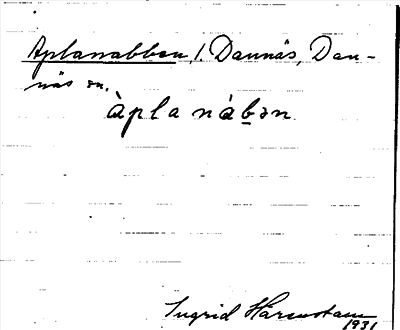 Aplanabben, l. Dannäs, Dan-
näs sn.
àpla nábən
Ingrid Härenstam
1931